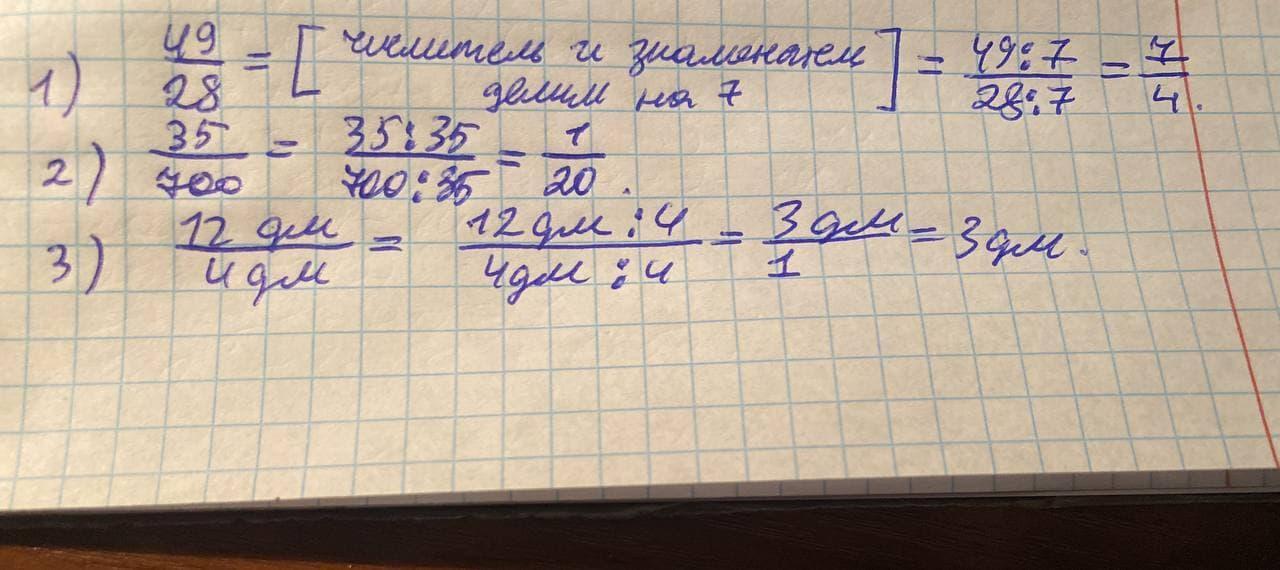 1) 49/28 = [числитель и знаменатем делим на 7] = 49:7/28:7 = 7/4.
2) 35/700 = 35:35/700:35 = 1/20.
3) 12 дм/4 дм = 12 дм:4/4 дм:4 = 3 дм/1 = 3 дм.